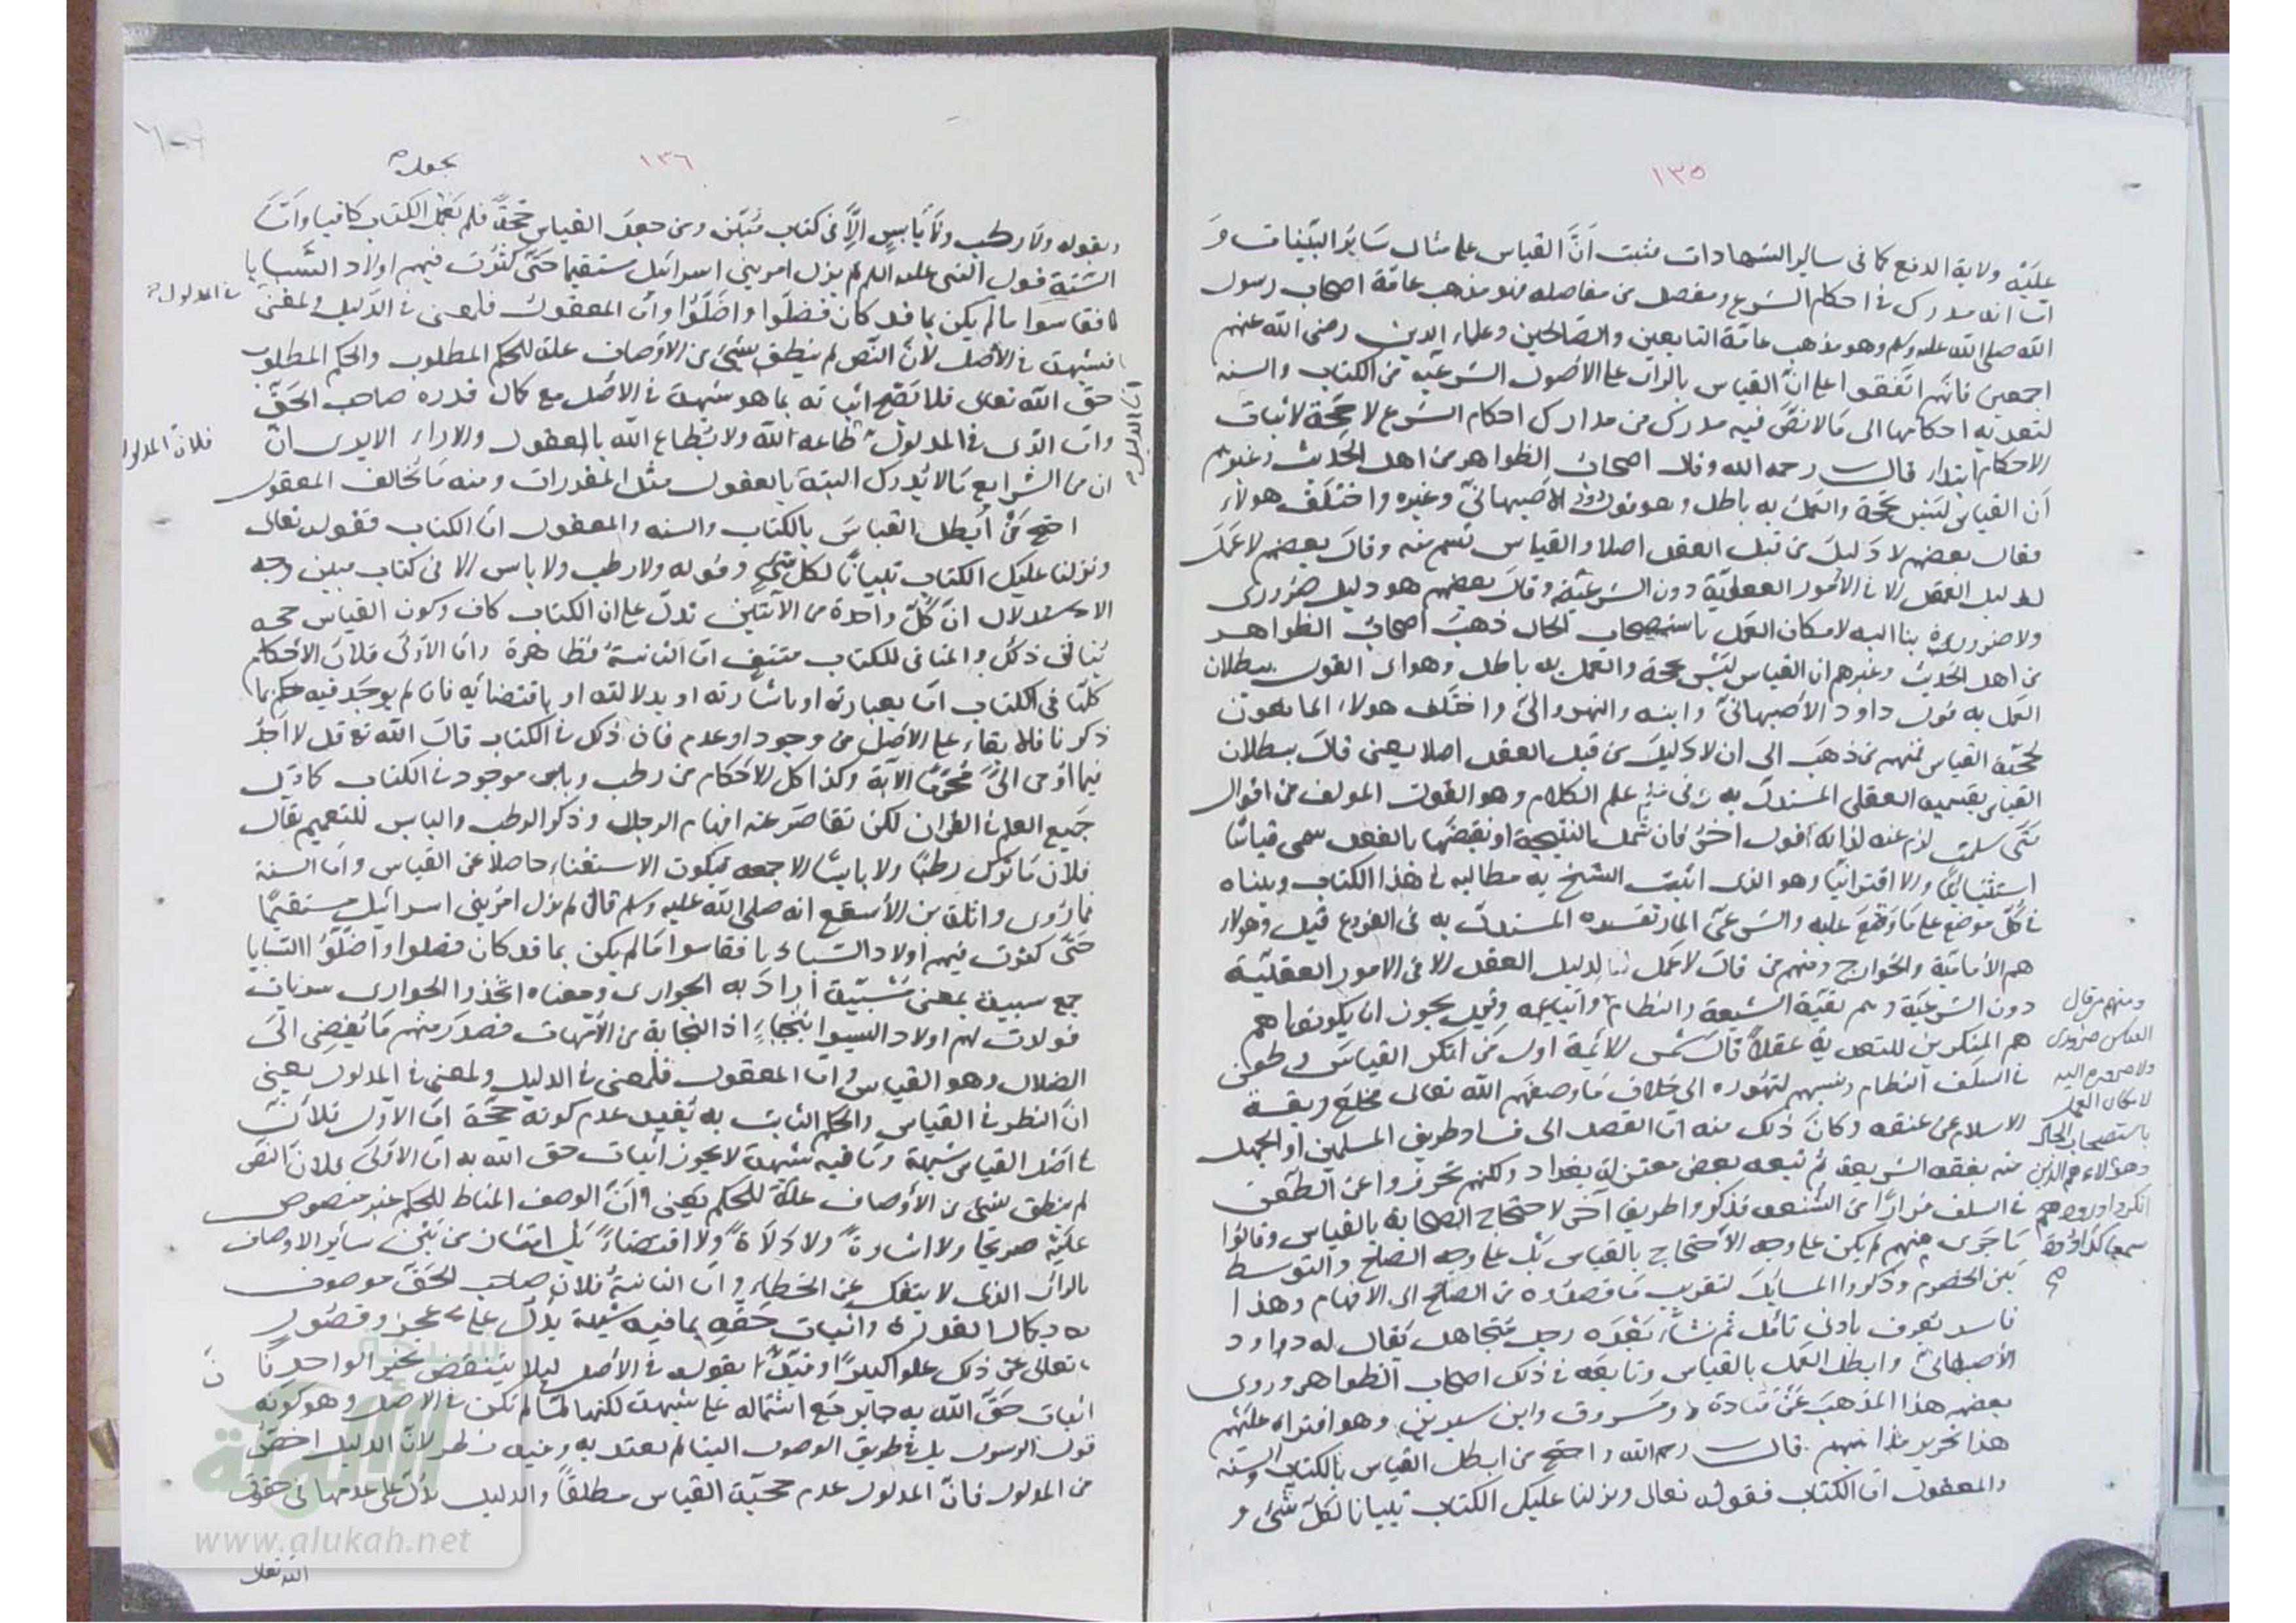 ١٣٥
عليه ولاية الدفع كما في ساير الشهادات مثبت أنّ القياس على مثال سَايرُ البيّنات وَ
انه مدرك في احكام الشرع ومفصل من مفاصله فهو مذهب عامّة اصحاب رسول
الله صلى الله عليه وسلم وهو مذهب عامّة التابعين والصّالحين وعلماء الدين رضى الله عنهم
اجمعين فانّهم اتّفقوا على انّ القياس بالراى على الاصول الشرعيّة من الكتاب والسنه
لتعديه احكامها الى مالا نصّ فيه مدرك من مدارك احكام الشرع لا حجّة لاثبات
الاحكام ابتداء قال رحمه الله وقال اصحاب الظواهر من اهل الحديث وغيرهم
أن القياس ليس بحجّة والعمل به باطل وهو قول داود الاصبهانيّ وغيره واختلف هولاء
فقال بعضهم لا دليل من قبل العقل اصلا والقياس قسم منه وقال بعضهم لا عمل
لدليل العقل الا في الامور العقليّة دون الشرعيّة وقال بعضهم هو دليل ضرورى
ولا ضرورة بنا اليه لامكان العمل باستصحاب الحال ذهب اصحاب الظواهر
من اهل الحديث وغيرهم ان القياس ليس بحجة والعمل به باطل وهو اى القول ببطلان
العمل به قول داود الأصبهانيّ وابنه والنهروانيّ واختلف هولاء المانعون
لحجّية القياس فمنهم من ذهب الى ان لا دليل من قبل العقل اصلا يعنى قال ببطلان
القياس بقسميه العقلى المستدلّ به في علم الكلام وهو القول المولف من اقوال
متى سلمت لزم عنه لذاته قول اخر فان شمل النتيجة او نقيضها بالفعل سمى قياسًا
استثنائيًّا والا اقترانيًّا وهو الذى اثبت الشيخ به مطالبه في هذا الكتاب وبيناه
في كلّ موضع على ما وقع عليه والشرعىّ المار تفسيره المستدلّ به في الفروع قيل وهولاء
هم الأماميّة والخوارج ومنهم من قال لا عمل لدليل العقل الا في الامور العقليّة
دون الشرعيّة وهم بقيّة الشيعة والنظام واتباعه وقيل يجوز ان يكونوا هم
هم المنكرين للتعبد به عقلًا قال شمس الائمة اول من انكر القياس وطعن
في السلف النظام ونسبهم لتهوره الى خلاف ما وصفهم الله تعالى فخلع ربقة
الاسلام عن عنقه وكان ذلك منه امّا القصد الى فساد طريق المسلمين او الجهل
منه بفقه الشريعة ثم تبعه بعض معتزلة بغداد ولكنهم تحرزوا عن الطعن
في السلف فرارًا من الشنعة فذكروا طريقا آخر لاحتجاج الصحابة بالقياس وقالوا
ما جرى منهم لم يكن على وجه الاحتجاج بالقياس بل على وجه الصلح والتوسط
بين الخصوم وذكروا المسايل لتقريب ما قصدوه من الصلح الى الافهام وهذا
فاسد يعرف بادنى تامّل ثم نشأ بعده رجل متجاهل يقال له داود
الأصبهانيّ وابطل العمل بالقياس وتابعه في ذلك اصحاب الظواهر وروى
بعضهم هذا المذهب عن قتادة ومسروق وابن سيرين وهو افتراء عليهم
هذا تحرير مذاهبهم قال رحمه الله واحتج من ابطل القياس بالكتاب والسنه
والمعقول امّا الكتاب فقوله تعالى ونزلنا عليك الكتاب تبيانا لكلّ شئ و
ومنهم من قال
القياس ضرورى
ولا ضرورة اليه
لامكان العمل
باستصحاب الحال
وهولاء هم الذين
١٣٦
وبقوله ولا رطب ولا يابس الاّ في كتاب مبين ومن جعل القياس حجّة فلم يجعل الكتاب كافيا وامّا
السّنة فقول النبى عليه السلم لم يزل امر بنى اسرائيل مستقيما حتّى كثرت فيهم اولاد السّبايا
فقاسوا ما لم يكن بما قد كان فضلّوا واضلّوا وامّا المعقول فلمعنى في الدليل ولمعنى
في المدلول
فشبهة في الأصل لأنّ النّص لم ينطق بشئ من الاوصاف علة للحكم المطلوب والحكم المطلوب
حق الله تعالى فلا يصح اثباته بما هو شبهة في الاصل مع كمال قدره صاحب الحقّ
وامّا الذى في المدلول طاعه الله ولا يطاع الله بالعقول والاراء الا يرى انّ
فلان المدلول
ان من الشرايع ما لا يدرك البتة بالعقول مثل المقدرات ومنه ما يخالف المعقول
احتج من أبطل القياس بالكتاب والسنه والمعقول امّا الكتاب فقوله تعالى
ونزلنا عليك الكتاب تبيانًا لكل شئ وقوله ولا رطب ولا يابس الا في كتاب مبين وجه
الاستدلال انّ كلّ واحدة من الآيتين تدلّ على ان الكتاب كاف وكون القياس حجه
ينافي ذلك والمنافي للكتاب منتف امّا الثانية فظاهرة وامّا الاولى فلانّ الأحكام
كلّها في الكتاب امّا بعبارته او باشارته او بدلالته او باقتضائه فان لم يوجد فيه حكم بما
ذكرنا فلابقاء على الأصل من وجود او عدم فان ذلك في الكتاب قال الله تع قل لا أجد
فيما اوحى الىّ محرّمًا الآية وكذا كل الاحكام من رطب ويابس موجود في الكتاب كما قيل
جميع العلم في القرآن لكن تقاصر عنه افهام الرجال وذكر الرطب واليابس للتعميم يقال
فلان ما ترك رطبًا ولا يابسًا الا جمعه فيكون الاستغناء حاصلا عن القياس وامّا السنة
فما روى واثلة بن الأسقع انه صلى الله عليه وسلم قال لم يزل امر بنى اسرائيل مستقيمًا
حتّى كثرت فيهم اولاد السبايا فقاسوا ما لم يكن بما قد كان فضلوا واضلّوا السّبايا
جمع سبية بمعنى مسبيّة أراد به الجوارى ومعناه اتخذوا الجوارى سريات
فولدت لهم اولاد ليسوا بنجباء اذ النجابة من الأمّهات فصدر منهم ما يفضى الى
الضلال وهو القياس وامّا المعقول فلمعنى في الدليل ولمعنى في المدلول يعنى
انّ النظر في القياس والحكم الثابت به يفيد عدم كونه حجّة امّا الاول فلانّ
في اصل القياس شبهة وما فيه شبهة لا يجوز اثبات حق الله به امّا الاولى فلانّ النصّ
لم ينطق بشئ من الأوصاف علّة للحكم يعنى انّ الوصف المناط للحكم غير منصوص
عليه صريحا ولا اشارة ولا دلالة ولا اقتضاءً بل امتاز من بين سائر الاوصاف
بالراى الذى لا ينفك عن الخطاء وامّا الثانية فلانّ صاحب الحقّ موصوف
بكمال القدرة واثبات حقّه بما فيه شبهة يدلّ على عجز وقصور
تعالى عن ذلك علوا كبيرًا وقيّد بقوله في الأصل ليلا ينتقض بخبر الواحد فان
اثبات حقّ الله به جايز مع اشتماله على شبهة لكنها لمّا لم تكن في الاصل وهو كونه
قول الرسول بل في طريق الوصول الينا لم يعتد به وفيه نظر لانّ الدليل اخصّ
من المدلول فانّ المدلول عدم حجّية القياس مطلقًا والدليل يدلّ على عدمها في حقوق
الله تعالى
شبكة
الألوكة
www.alukah.net